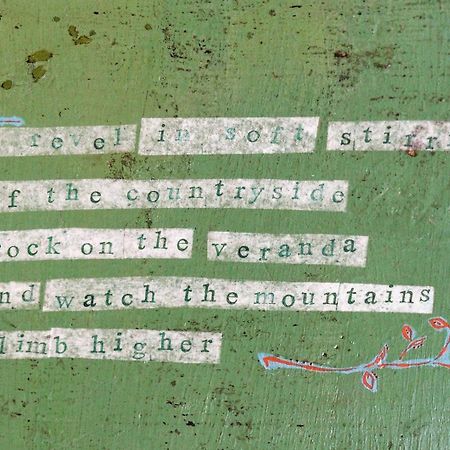 revel in soft stirri
f the countryside
rock on the veranda
nd watch the mountains
limb higher